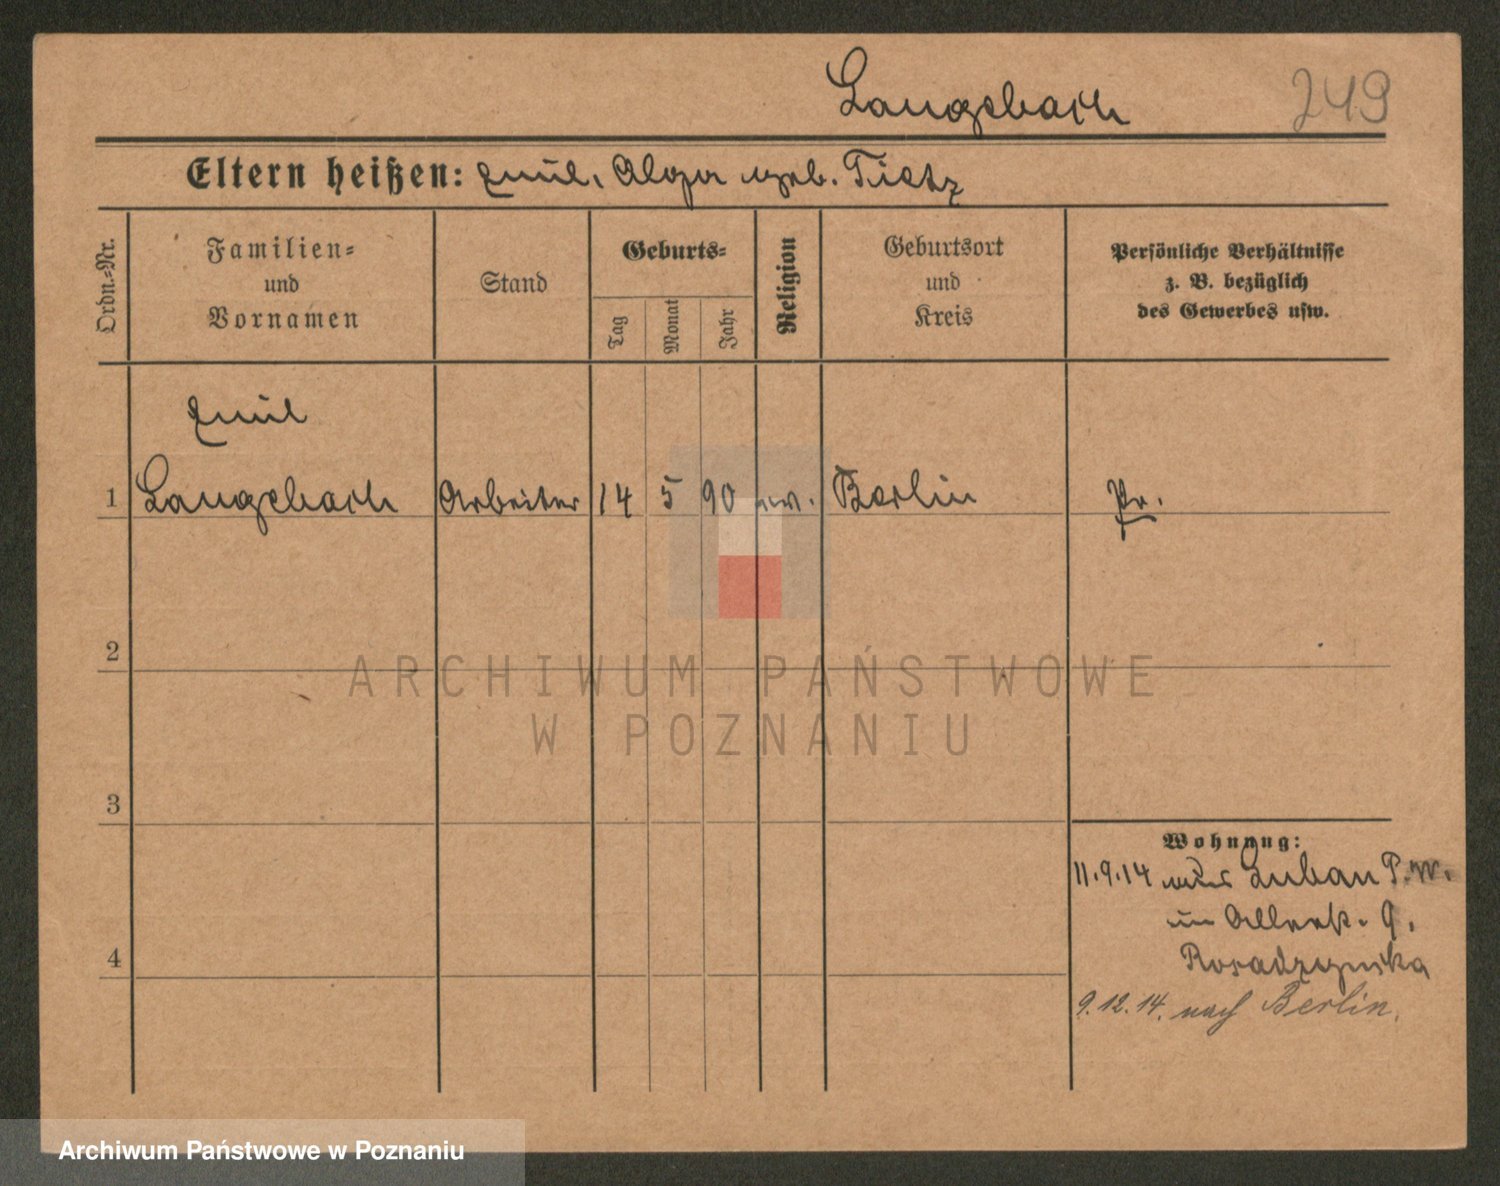 Langebach 249
Eltern heißen: Emil, Olga geb. Tietz
Ordn.=Nr.
Familien=
und
Vornamen
Stand
Geburts=
Tag
Monat
Jahr
Religion
Geburtsort
und
Kreis
Persönliche Verhältnisse
z. B. bezüglich
des Gewerbes usw.
Emil
1 Langebach Arbeiter 14 5 90 ev. Berlin Pr.
2
3
4
Wohnung:
11.9.14 aus Luban P.W.
9.
9.12.14. nach Berlin.
ARCHIWUM PAŃSTWOWE
W POZNANIU
Archiwum Państwowe w Poznaniu